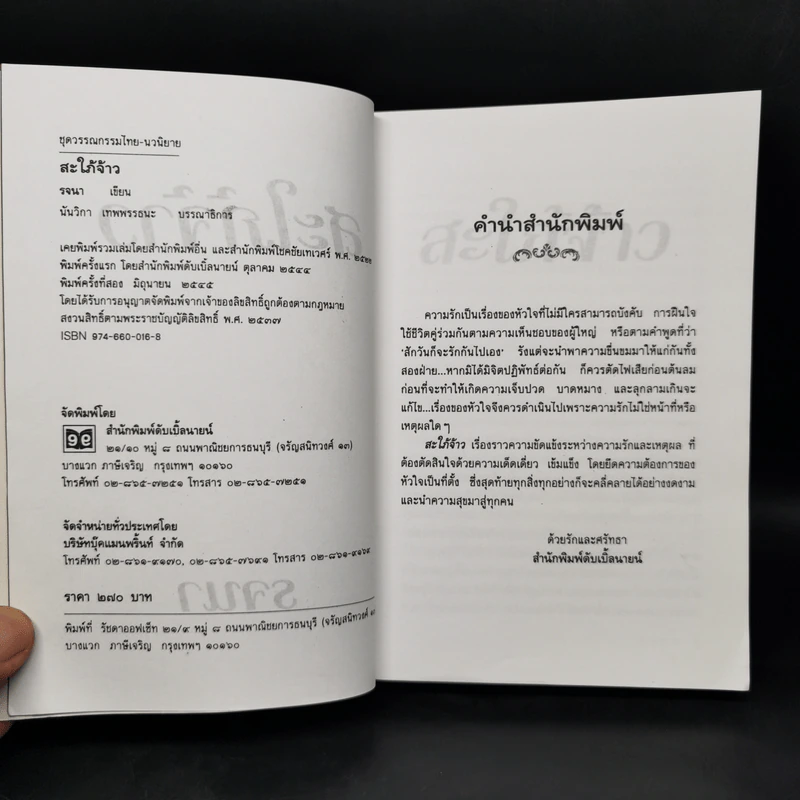 ชุดวรรณกรรมไทย-นวนิยาย
สะใภ้จ้าว
รจนา เขียน
นันวิกา เทพพรรธนะ บรรณาธิการ
เคยพิมพ์รวมเล่มโดยสำนักพิมพ์อื่น และสำนักพิมพ์โชคชัยเทเวศร์ พ.ศ. ๒๕๒๒
พิมพ์ครั้งแรก โดยสำนักพิมพ์ดับเบิ้ลนายน์ ตุลาคม ๒๕๔๔
พิมพ์ครั้งที่สอง มิถุนายน ๒๕๔๕
โดยได้รับการอนุญาตจัดพิมพ์จากเจ้าของลิขสิทธิ์ถูกต้องตามกฎหมาย
สงวนสิทธิ์ตามพระราชบัญญัติลิขสิทธิ์ พ.ศ. ๒๕๓๗
ISBN 974-660-016-8
จัดพิมพ์โดย
สำนักพิมพ์ดับเบิ้ลนายน์
๒๑/๑๐ หมู่ ๘ ถนนพาณิชยการธนบุรี (จรัญสนิทวงศ์ ๑๓)
บางแวก ภาษีเจริญ กรุงเทพฯ ๑๐๑๖๐
โทรศัพท์ ๐๒-๘๖๕-๗๒๕๑ โทรสาร ๐๒-๘๖๕-๗๒๕๑
จัดจำหน่ายทั่วประเทศโดย
บริษัทบุ๊คแมนพริ้นท์ จำกัด
โทรศัพท์ ๐๒-๘๖๑-๙๑๗๐, ๐๒-๘๖๕-๗๖๙๑ โทรสาร ๐๒-๘๖๑-๙๑๖๙
ราคา ๒๗๐ บาท
พิมพ์ที่ รัชดาออฟเซ็ท ๒๑/๙ หมู่ ๘ ถนนพาณิชยการธนบุรี (จรัญสนิทวงศ์ ๑๓)
บางแวก ภาษีเจริญ กรุงเทพฯ ๑๐๑๖๐
คำนำสำนักพิมพ์
ความรักเป็นเรื่องของหัวใจที่ไม่มีใครสามารถบังคับ การฝืนใจ
ใช้ชีวิตคู่ร่วมกันตามความเห็นชอบของผู้ใหญ่ หรือตามคำพูดที่ว่า
'สักวันก็จะรักกันไปเอง' รังแต่จะนำพาความขื่นขมมาให้แก่กันทั้ง
สองฝ่าย...หากมิได้มีจิตปฏิพัทธ์ต่อกัน ก็ควรตัดไฟเสียก่อนต้นลม
ก่อนที่จะทำให้เกิดความเจ็บปวด บาดหมาง และลุกลามเกินจะ
แก้ไข...เรื่องของหัวใจจึงควรดำเนินไปเพราะความรักไม่ใช่หน้าที่หรือ
เหตุผลใด ๆ
สะใภ้จ้าว เรื่องราวความขัดแย้งระหว่างความรักและเหตุผล ที่
ต้องตัดสินใจด้วยความเด็ดเดี่ยว เข้มแข็ง โดยยึดความต้องการของ
หัวใจเป็นที่ตั้ง ซึ่งสุดท้ายทุกสิ่งทุกอย่างก็จะคลี่คลายได้อย่างงดงาม
และนำความสุขมาสู่ทุกคน
ด้วยรักและศรัทธา
สำนักพิมพ์ดับเบิ้ลนายน์